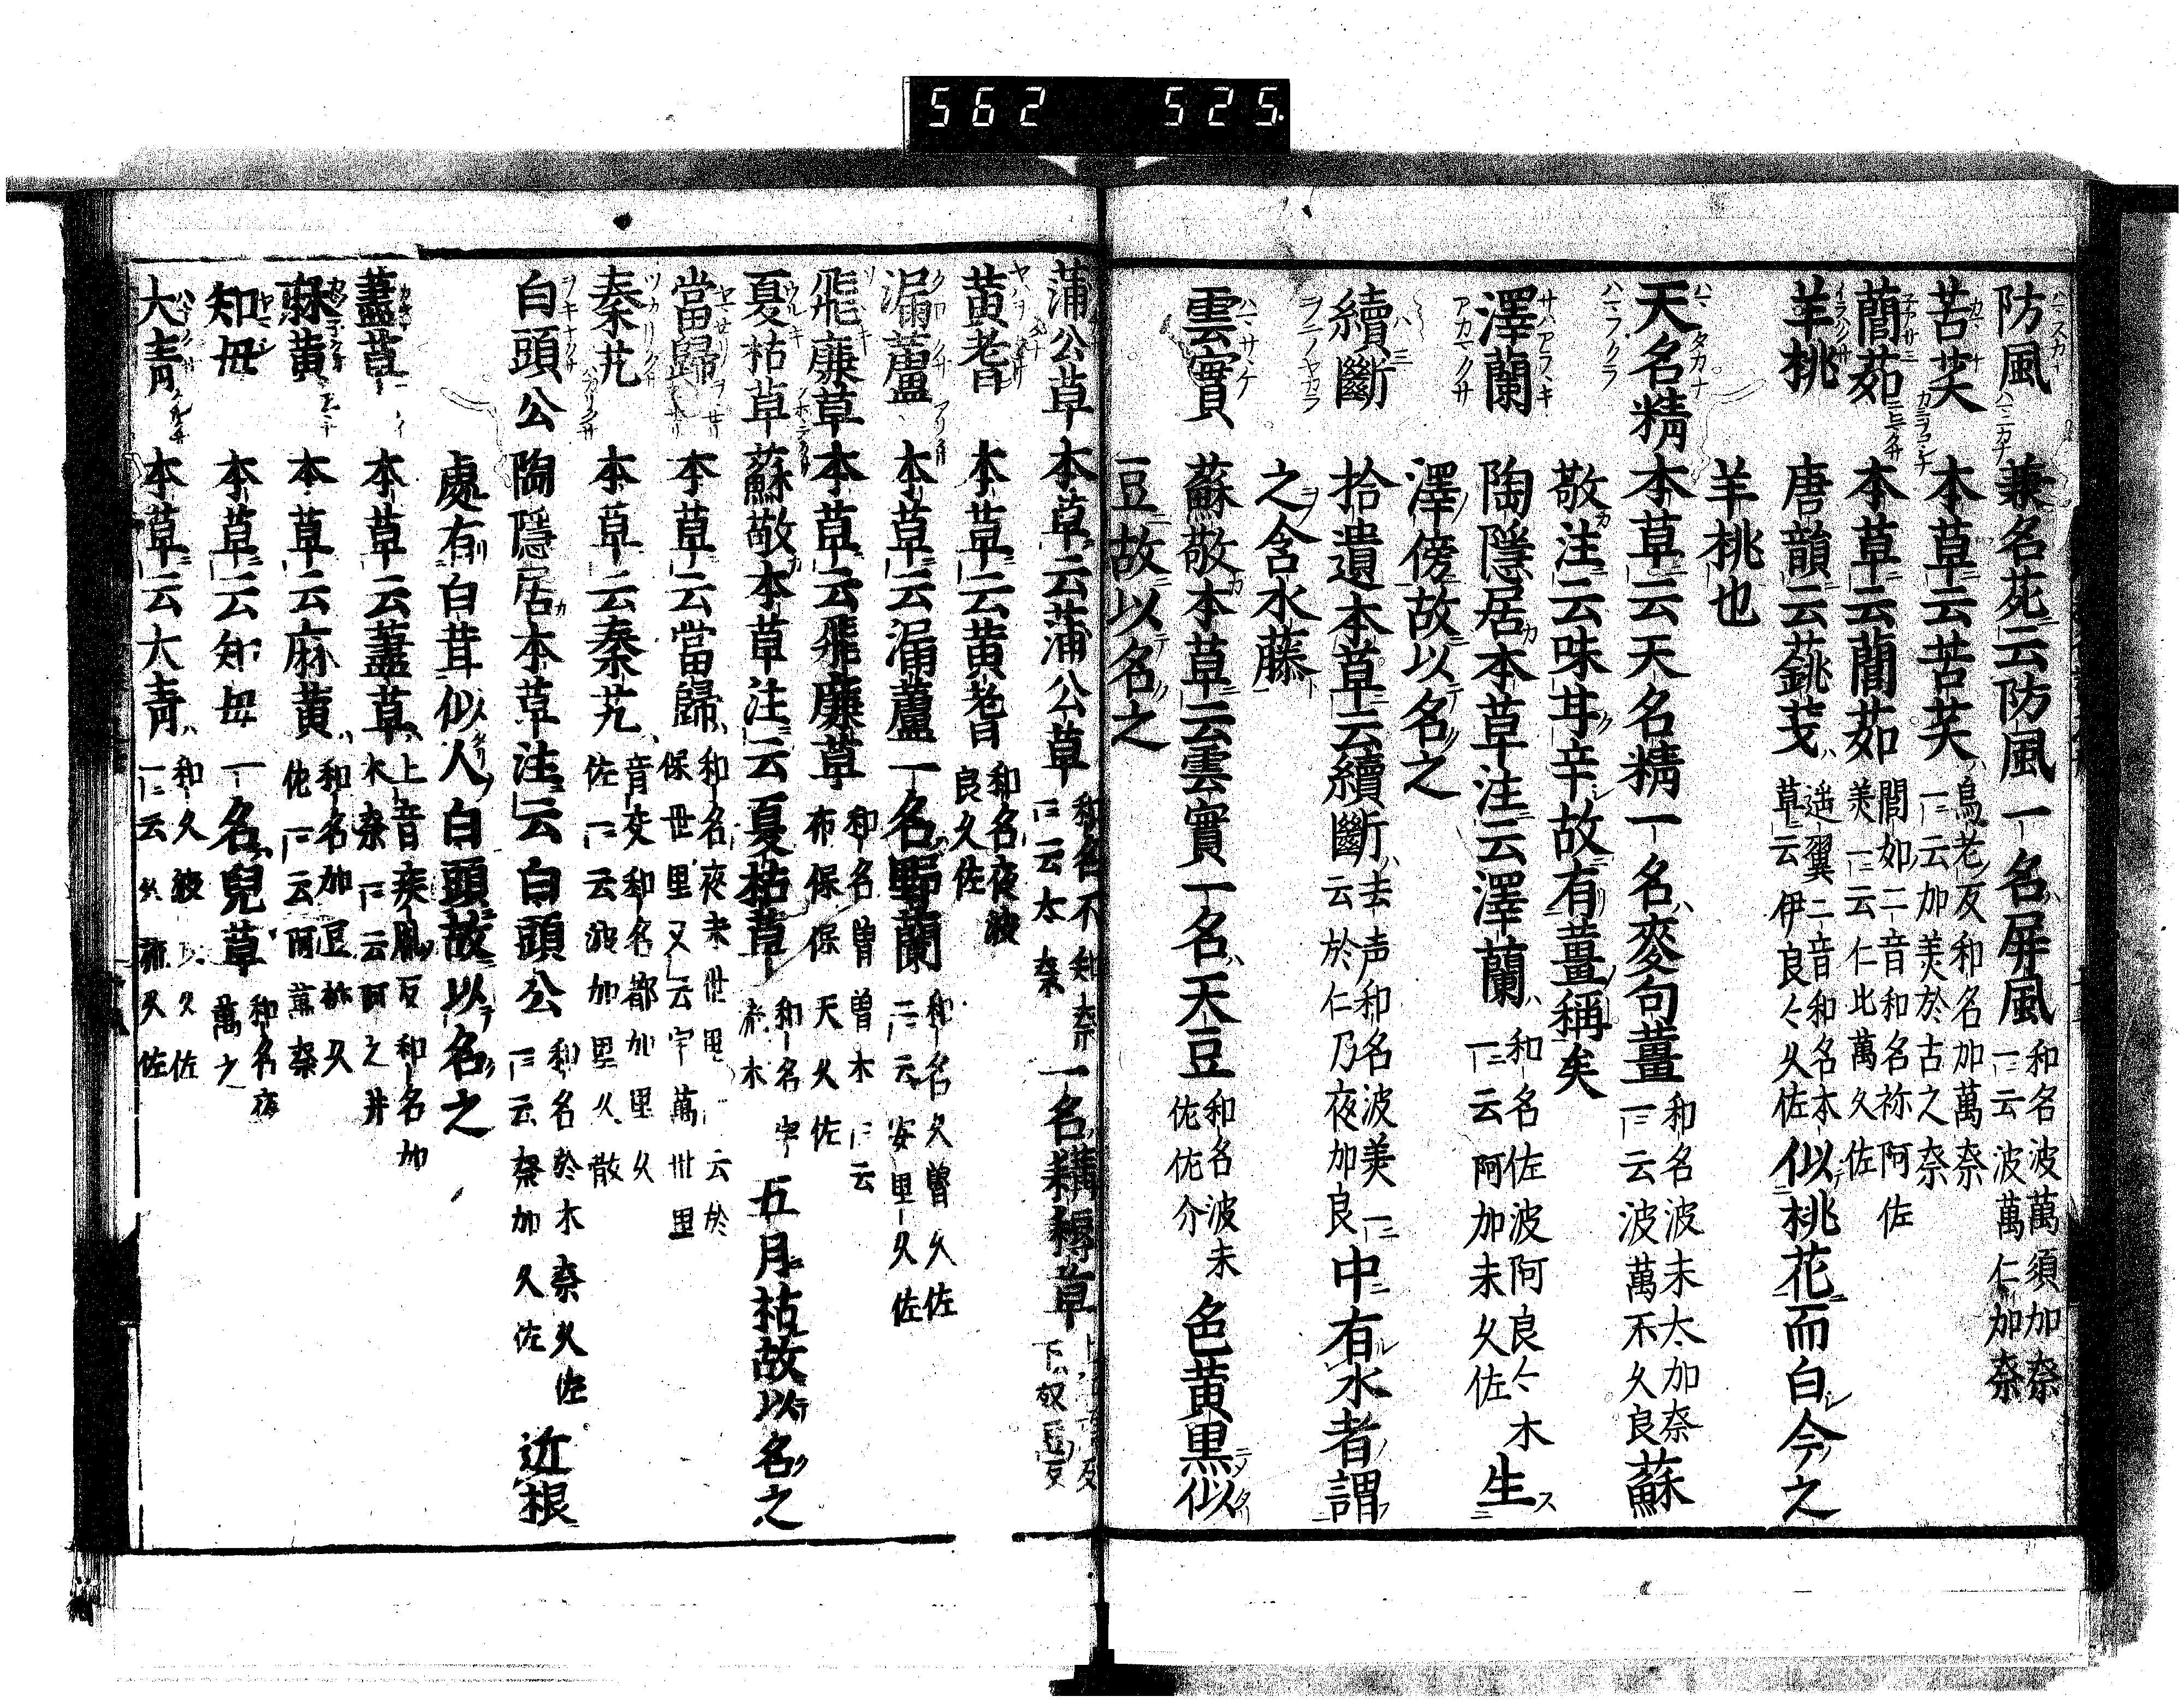 562 525
防風 兼名苑云防風一名屏風 和名波萬須加奈 一云波萬仁加奈
苦芺 本草云苦芺 烏老反和名加萬奈 一云加美於古之奈
藺茹 本草云藺茹 閭如二音和名祢阿佐美 一云仁比萬久佐
羊桃 唐韻云銚芅 遥翼二音和名本草云伊良々久佐 似桃花而白今之
羊桃也
天名精 本草云天名精一名麥句薑 和名波末太加奈 一云波萬不久良 蘇
敬注云味甘辛故有薑稱矣
澤蘭 陶隠居本草注云澤蘭 和名佐波阿良々木 一云阿加末久佐 生
澤傍故以名之
續斷 拾遺本草云續斷 去声和名波美 一云於仁乃夜加良 中有水者謂
之含水藤
雲實 蘇敬本草云雲實一名天豆 和名波末佐佐介 色黄黒似
豆故以名之
蒲公草 本草云蒲公草 和名不知奈 一云太奈 一名耩耨草
黄耆 本草云黄耆 和名夜波良久佐
漏蘆 本草云漏蘆一名野蘭 和名久曽久佐 一云安里久佐
飛廉草 本草云飛廉草 和名曽曽木 一云布保保天久佐
夏枯草 蘇敬本草注云夏枯草 和名宇流木 五月枯故以名之
當歸 本草云當歸 和名夜末世里 一云於保世里又云宇萬世里
秦艽 本草云秦艽 音交和名都加里久佐 一云波加里久散
白頭公 陶隱居本草注云白頭公 和名於木奈久佐 一云奈加久佐 近根
處有白茸似人白頭故以名之
藎草 本草云藎草 上音疾胤反和名加木奈 一云阿之井
麻黄 本草云麻黄 和名加豆祢久佐 一云阿萬奈
知母 本草云知母一名兒草 和名夜萬之
大青 本草云大青 和名波止久佐 一云久流久佐